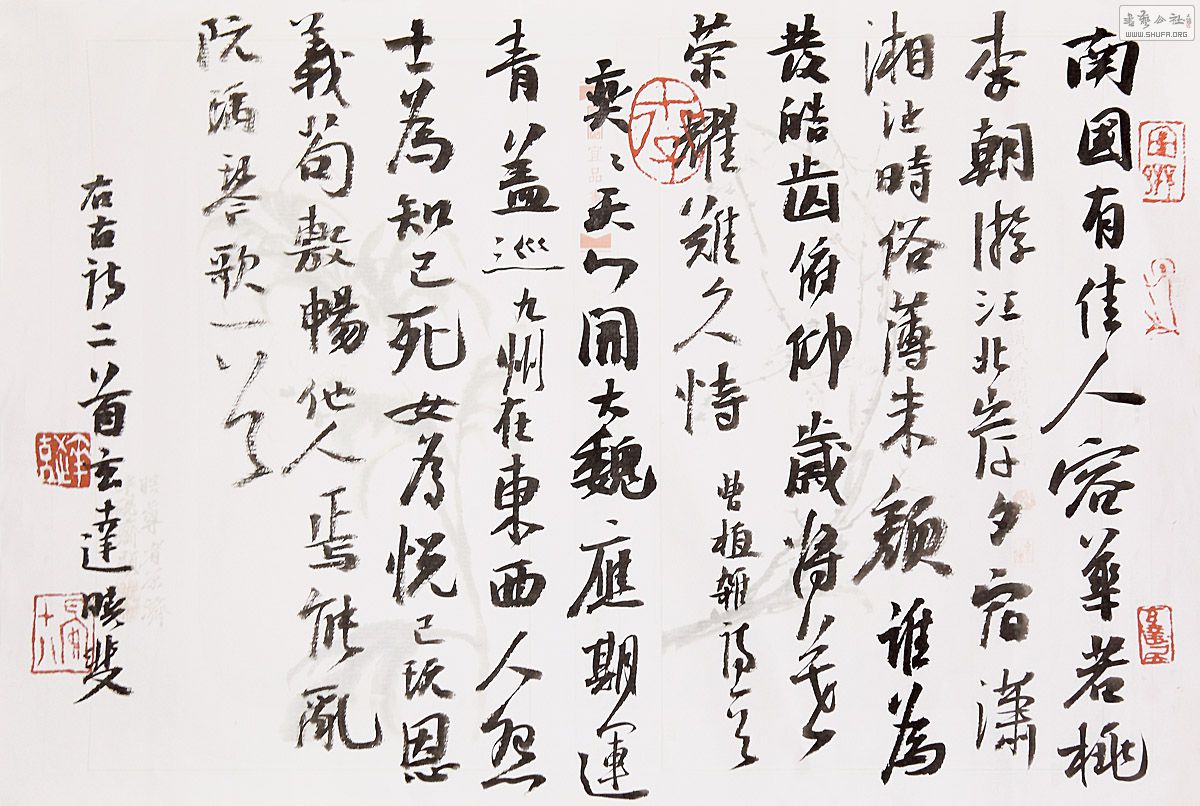 南国有佳人容華若桃
李朝游江北岸夕宿瀟
湘沚時俗薄朱顏誰為
發皓齿俯仰歲將暮
荣耀難久恃
曹植雜詩一首
奕〻天门開大魏應期運
青盖巡九州在東西人怨
士為知己死女為悅己玩恩
義苟敷暢他人焉能亂
阮瑀琴歌一首
右古詩二首玄達
書藝公社
WWW.SHUFA.ORG